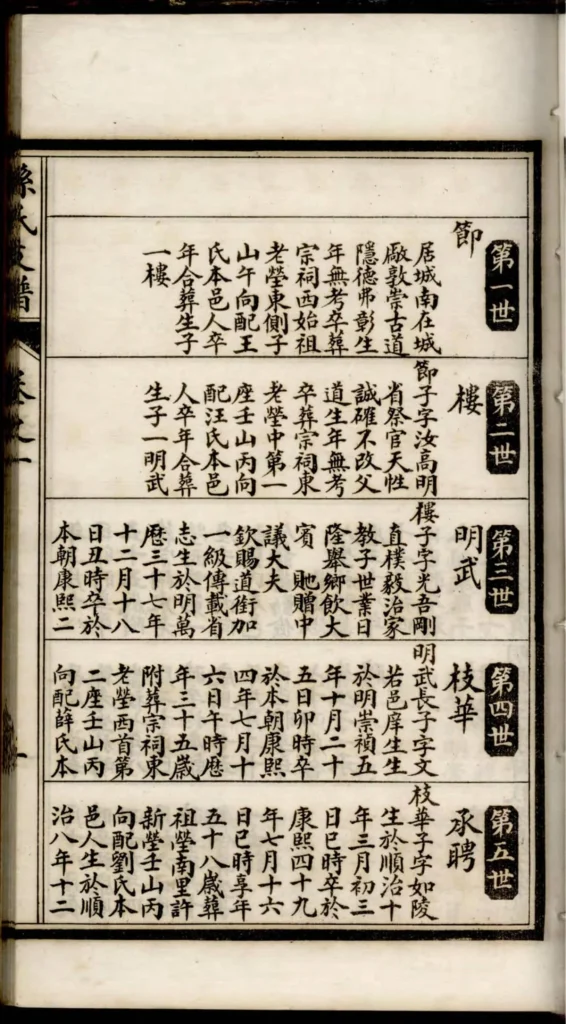 第一世
節
居城南在城
廠敦崇古道
隱德弗彰生
年無考卒葬
宗祠西始祖
老塋東側子
山午向配王
氏本邑人卒
年合葬生子
一樓
第二世
樓
節子字汝高明
省祭官天性
誠確不改父
道生年無考
卒葬宗祠東
老塋中第一
座壬山丙向
配汪氏本邑
人卒年合葬
生子一明武
第三世
明武
樓子字光吾剛
直樸毅治家
教子世業日
隆舉鄉飲大
賓 貤贈中
議大夫
欽賜道銜加
一級傳載省
志生於明萬
曆三十七年
十二月十八
日丑時卒於
本朝康熙二
第四世
枝華
明武長子字文
若邑庠生生
於明崇禎五
年十月二十
五日卯時卒
於本朝康熙
四年七月十
六日午時歷
年三十五歲
附葬宗祠東
老塋西首第
二座壬山丙
向配薛氏本
第五世
承聘
枝華子字如陵
生於順治十
年三月初三
日巳時卒於
康熙四十九
年七月十六
日巳時享年
五十八歲葬
祖塋南里許
新塋壬山丙
向配劉氏本
邑人生於順
治八年十二
孫氏支譜
卷之一